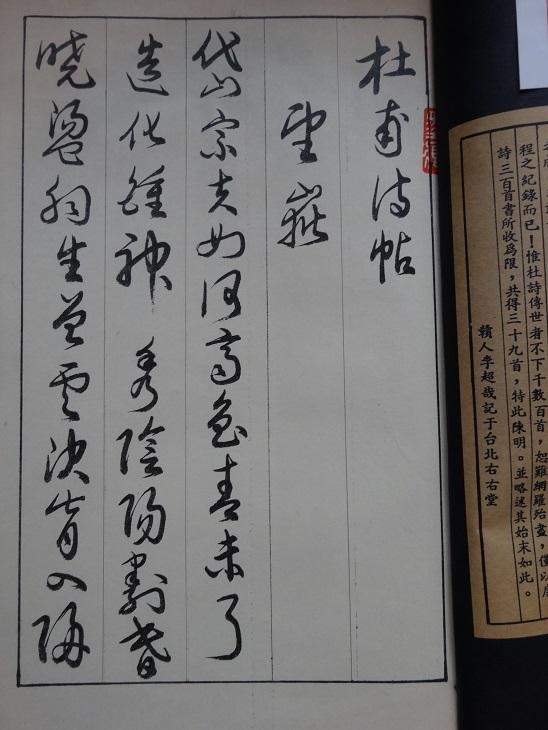 程之紀錄而已！惟杜詩傳世者不下千數百首，恕難網羅殆盡，僅以唐
詩三百首書所收爲限，共得三十九首，特此陳明。並略述其始末如此。
贛人李超哉記于台北右右堂
杜甫詩帖
望嶽
岱宗夫如何齊魯青未了
造化鍾神秀陰陽割昏
曉盪胸生曾雲決眥入歸